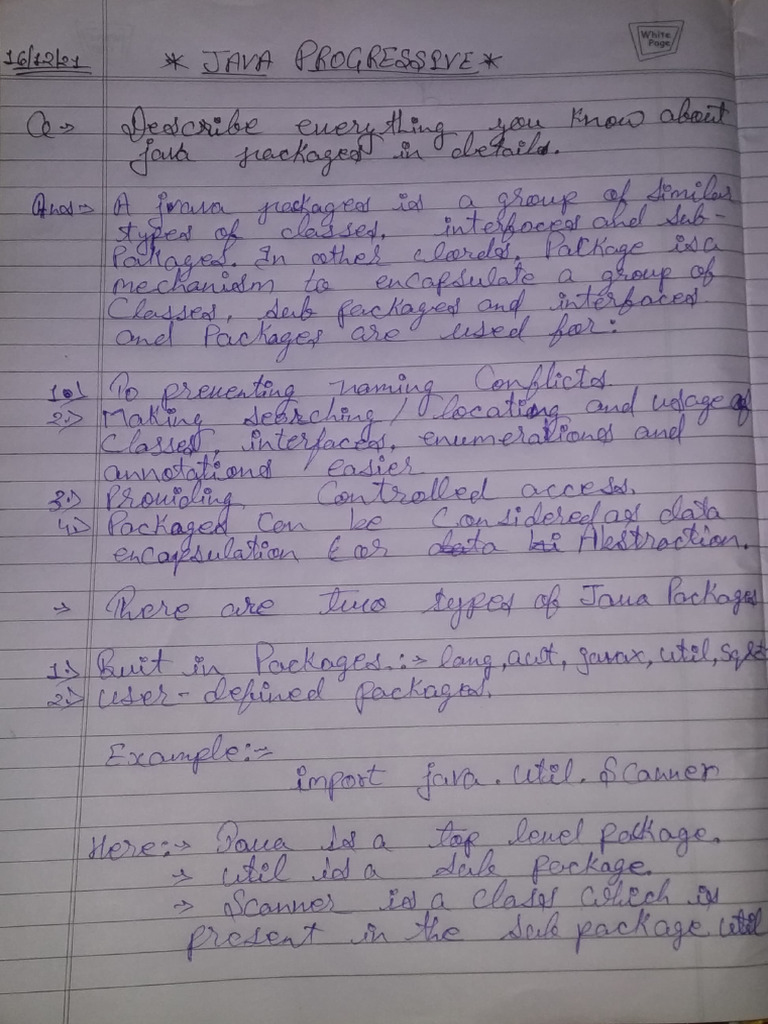 White
Page
16/12/21
* JAVA PROGRESSIVE *
Q → Describe everything you know about
java packages in details.
Ans → A java packages is a group of similar
types of classes, interfaces and sub-
Packages. In other words, Package is a
mechanism to encapsulate a group of
Classes, sub packages and interfaces
and Packages are used for :
1.) To preventing naming Conflicts
2.) Making searching / locating and usage of
Classes, interfaces, enumerations and
annotations easier
3.) Providing Controlled access.
4.) Packages Can be Considered as data
encapsulation (or data Abstraction.
→ There are two types of Java Packages
1.) Built in Packages :→ lang, awt, javax, util,
2.) User-defined packages.
Example :→
import java. util. Scanner
Here :→ Java is a top level package.
→ util is a sub package.
→ Scanner is a class which is
present in the sub package util